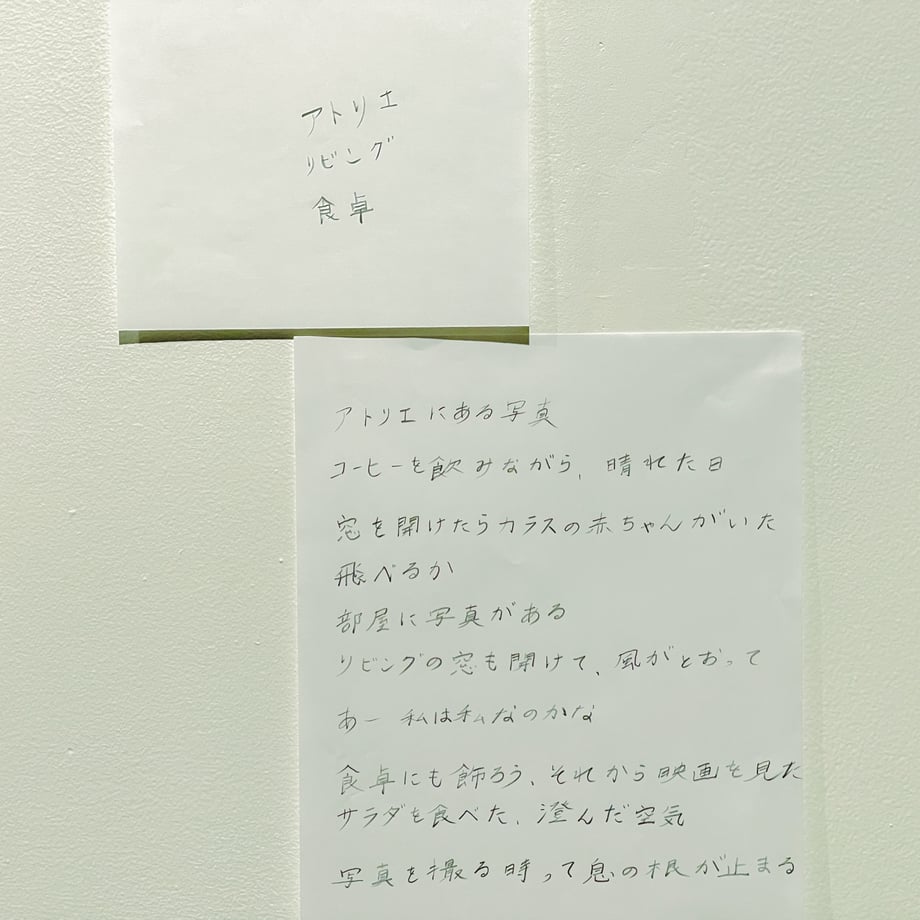 アトリエ
リビング
食卓
アトリエにある写真
コーヒーを飲みながら、晴れた日
窓を開けたらカラスの赤ちゃんがいた
飛べるか
部屋に写真がある
リビングの窓も開けて、風がとおって
あー 私は私なのかな
食卓にも飾ろう、それから映画を見た
サラダを食べた、澄んだ空気
写真を撮る時って息の根が止まる